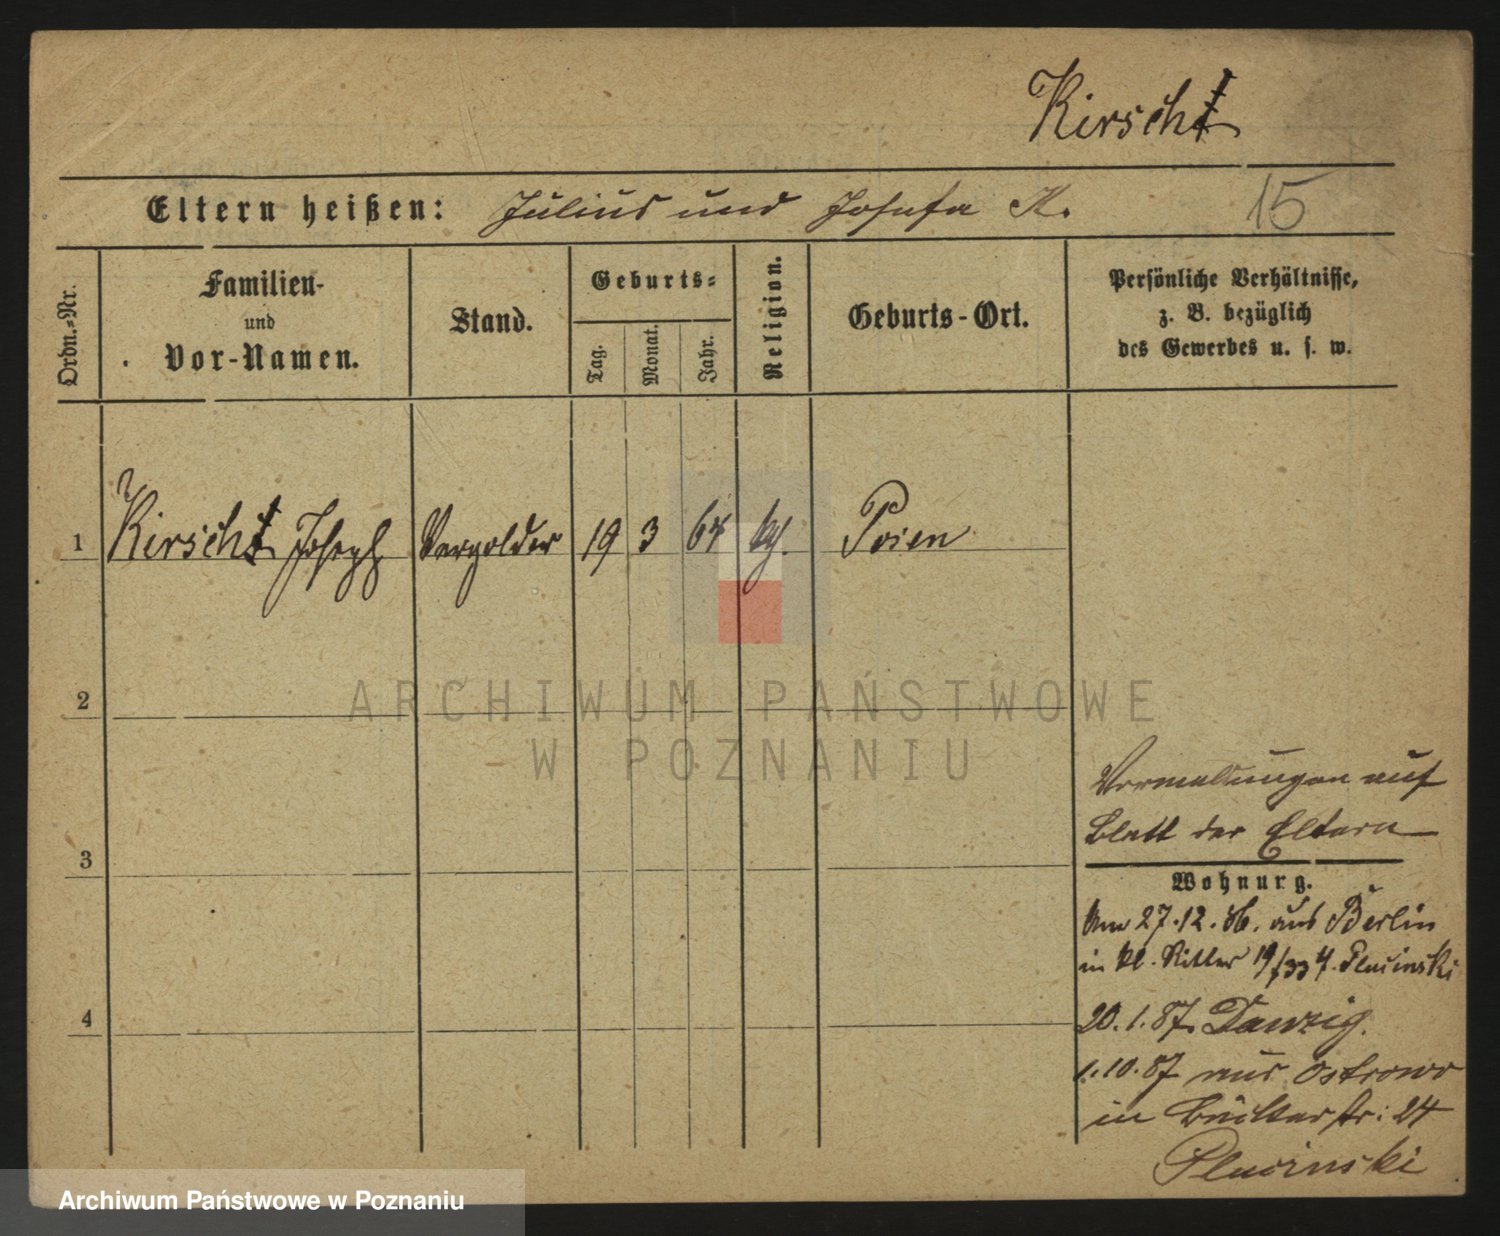 Kirscht
Eltern heißen: Julius und Josefa K. 15
Ordn.-Nr.
Familien-
und
Vor-Namen.
Stand.
Geburts-
Tag.
Monat.
Jahr.
Religion.
Geburts-Ort.
Persönliche Verhältnisse,
z. B. bezüglich
des Gewerbes u. s. w.
1 Kirscht Joseph Vergolder 19 3 64 kh. Posen
2
ARCHIWUM PAŃSTWOWE
W POZNANIU
Vormeldungen auf
Blatt der Eltern
3
Wohnung.
Am 27.12.86. aus Berlin
in kl. Ritter 19/33 4. Plucinski
4
20.1.87. Danzig.
1.10.87 aus Ostrowo
in Bäckerstr: 24
Plucinski
Archiwum Państwowe w Poznaniu